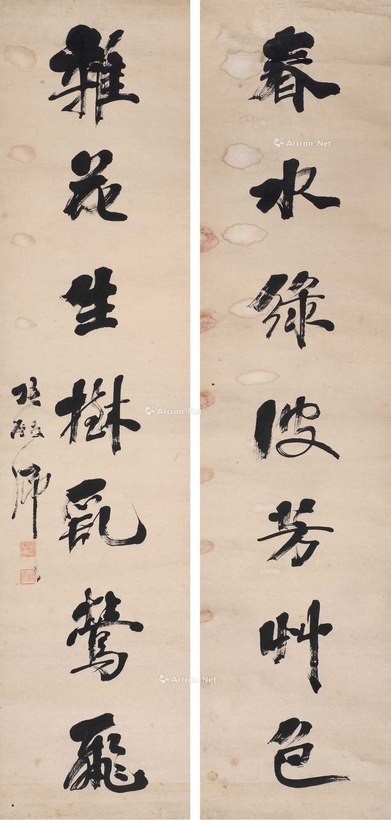 春水綠波芳艸色
雜花生樹亂鶯飛
Artron.Net
Artron.Net
Artron.Net
Artron.Net